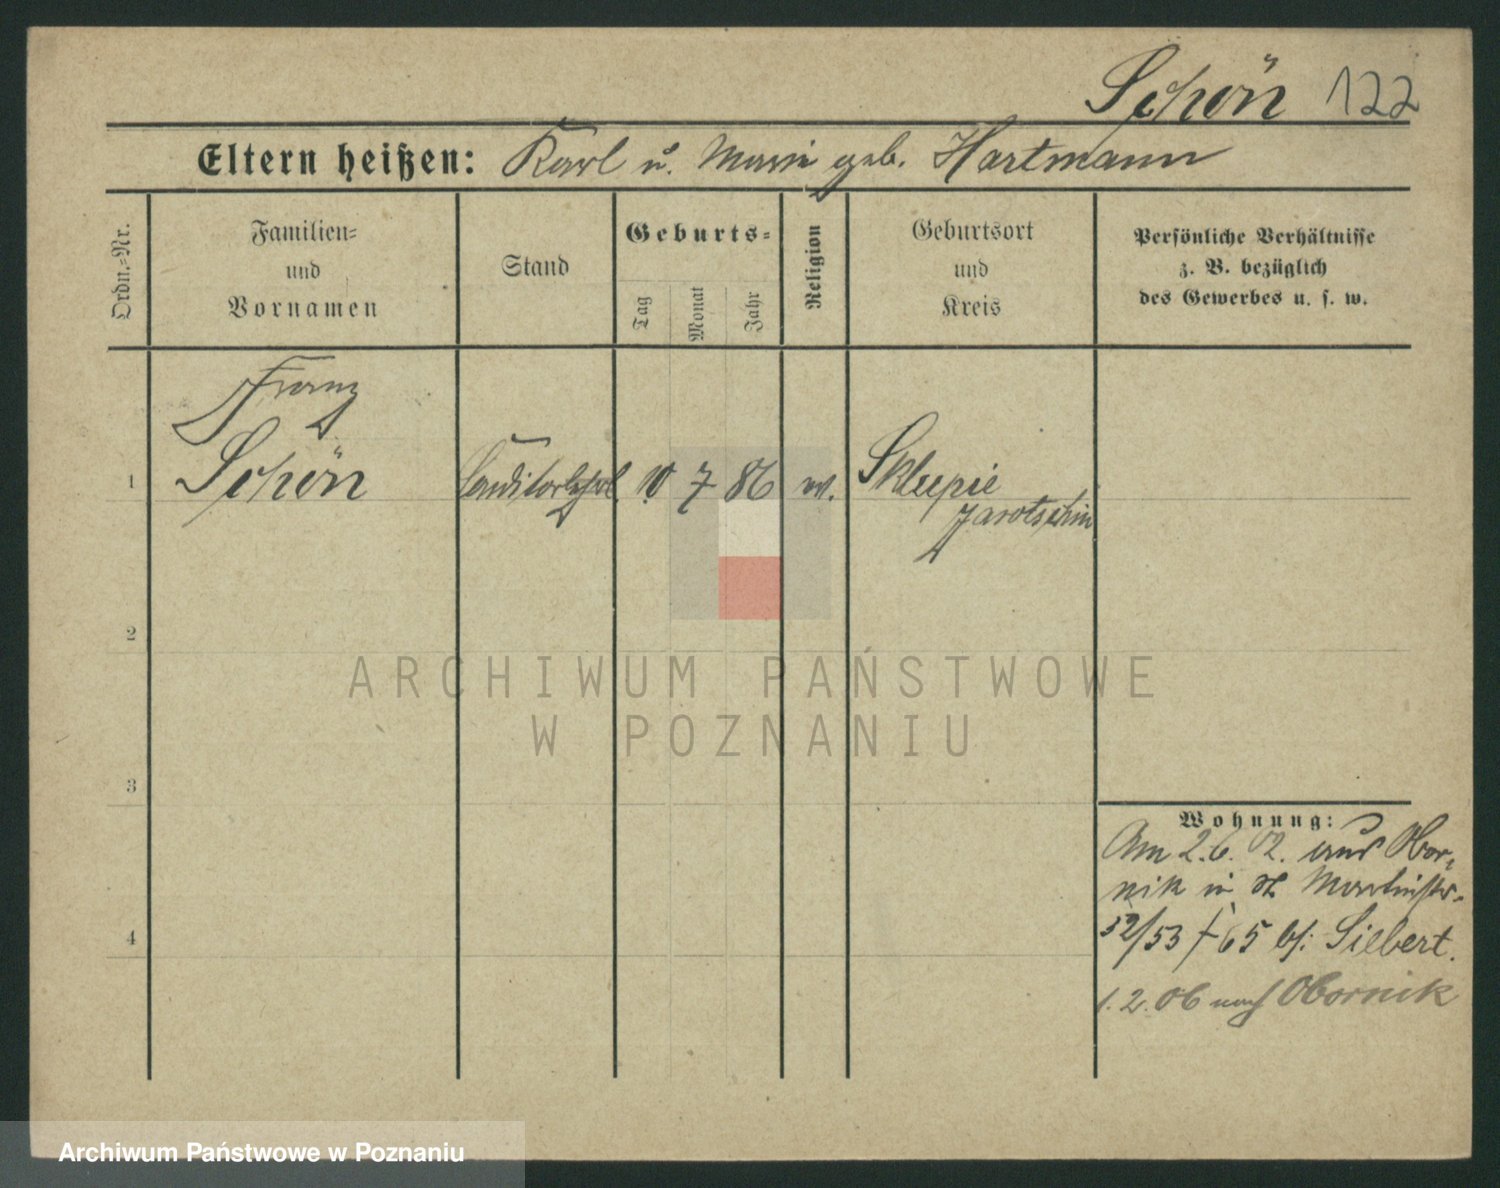 Schön 122
Eltern heißen: Karl u. Marie geb. Hartmann
Ordn.-Nr.
Familien-
und
Vornamen
Stand
Geburts-
Tag
Monat
Jahr
Religion
Geburtsort
und
Kreis
Persönliche Verhältnisse
z. B. bezüglich
des Gewerbes u. s. w.
Franz
1 Schön Conditorlehrl. 10 7 86 ev. Sklepie
Jarotschin
2
3
4
Wohnung:
Am 2.6.02. aus Obor-
nik in St. Martinstr.
52/53 65 bei Siebert.
1.2.06 nach Obornik
ARCHIWUM PAŃSTWOWE
W POZNANIU
Archiwum Państwowe w Poznaniu